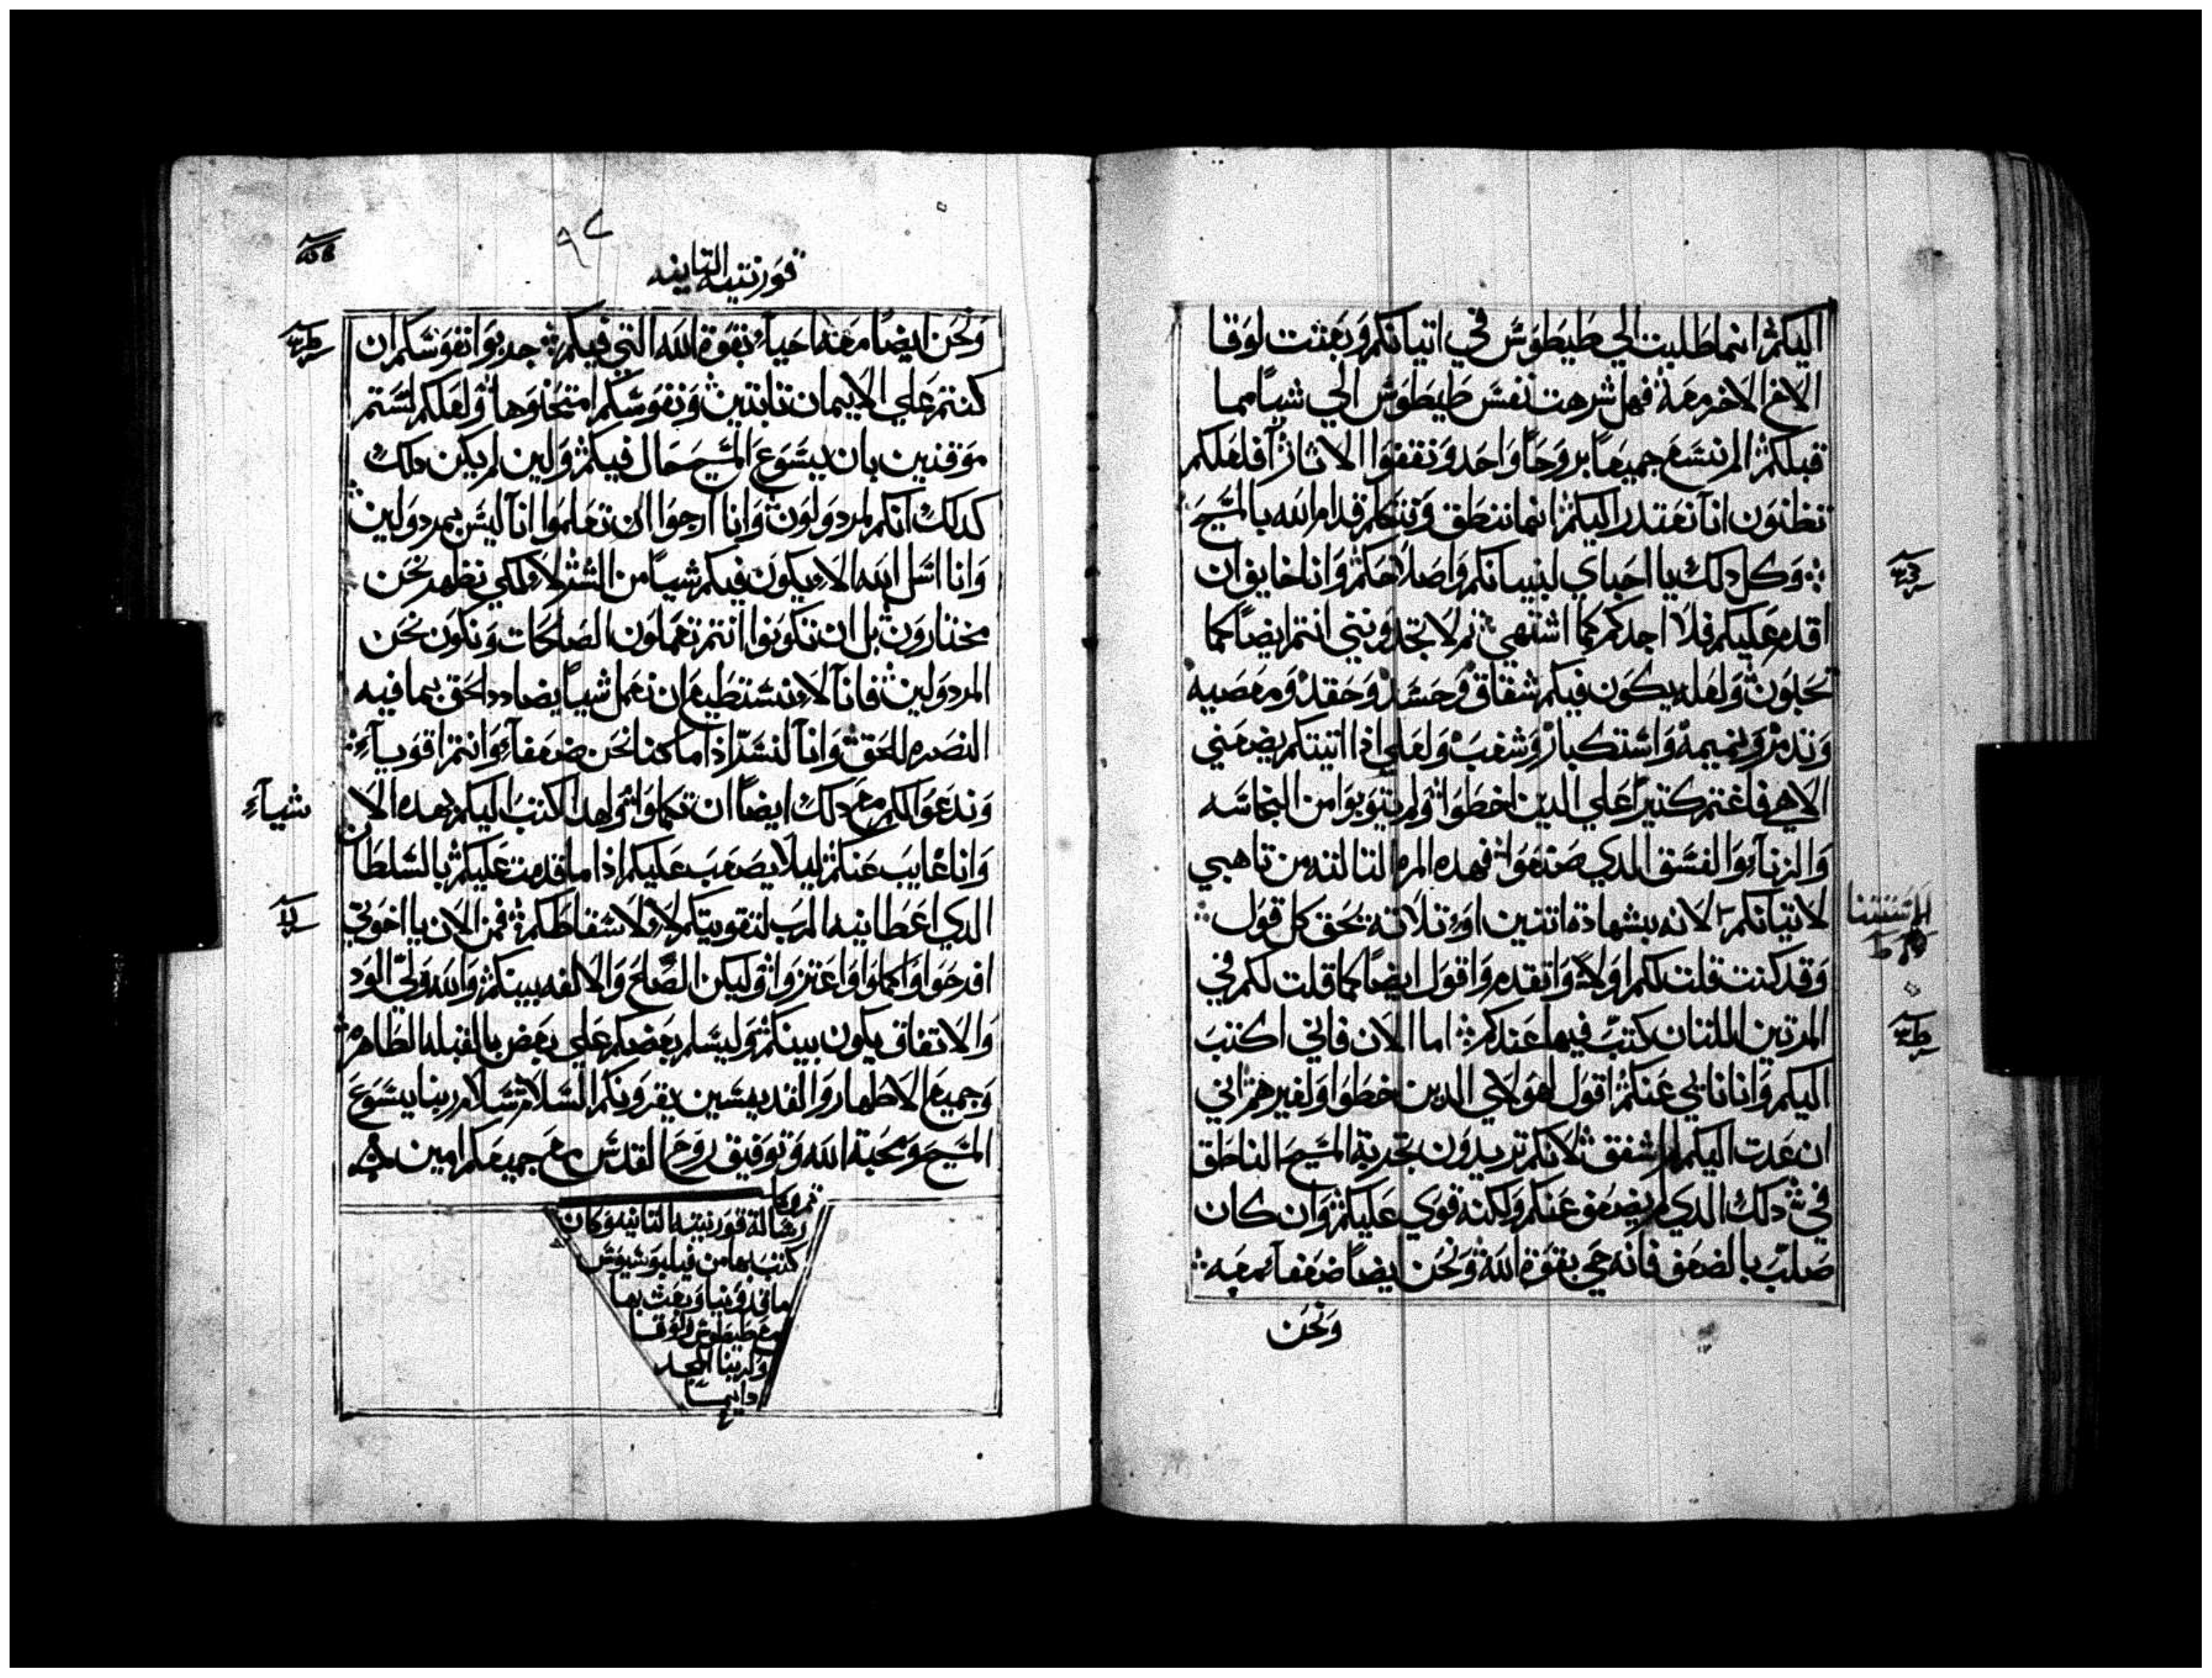 اليكم انما طلبت الي طيطوس في اتيانكم وبعثت لوقا
الاخ الاخر معه فهل شرهت نفس طيطوس الي شيا مما
قبلكم الم نسع جميعا بروحا واحد ونقفوا الاثار افلعلكم
تظنون انا نعتدر اليكم انما ننطق ونتكلم قدام الله بالمسيح
وكل دلك يا احباي لبنيانكم واصلاحكم وانا خايف ان
اقدم عليكم فلا اجدكم كما اشتهي ثم لا تجدونني انتم ايضا كما
تحبون ولعله يكون فيكم شقاق وحسد وحقد ومعصيه
وتدمر ونميمه واستكبار وشغب ولعلي اذا اتيتكم يضعني
الاهي فاغتم كثيرا علي الدين اخطوا ولم يتوبوا من النجاسه
والزناء والفسق الدي صنعوا فهده المره التالته من تاهبي
لاتيانكم لانه بشهادة اتنين او تلاتة يحق كل قول
وقد كنت قلت لكم اولا واتقدم واقول ايضا كما قلت لكم في
المرتين اللتان كتب فيهما عندكم اما الان فاني اكتب
اليكم وانا نايي عنكم اقول لهولاي الدين خطوا ولغيرهم اني
ان عدت اليكم لم اشفق لانكم تريدون تجربة المسيح الناطق
في دلك الدي لم يضعف عنكم ولكنه قوي عليكم وان كان
صلب بالضعف فانه حي بقوة الله ونحن ايضا ضعفا معه
ونحن
قورنتيه التانيه
ونحن ايضا معه احياء بقوة الله التي فيكم جربوا نفوسكم ان
كنتم علي الايمان تابتين ونفوسكم امتحنوها ولعلكم لستم
موقنين بان يسوع المسيح حال فيكم ولين لم يكن دلك
كدلك انكم لمردولون وانا ارجوا ان تعلموا انا ليس بمردولين
وانا اسل الله الا يكون فيكم شيا من الشر لا لكي نظهر نحن
مختارون بل ان تكونوا انتم تعملون الصالحات ونكون نحن
المردولين فانا لا نستطيع ان نعمل شيا يضادد الحق بما فيه
النصره للحق وانا لنسر اذا ما كنا نحن ضعفاء وانتم اقوياء
وندعوا لكم مع دلك ايضا ان تكملوا ولهدا كتب اليكم بهده الا
شياء
وانا غايب عنكم ليلا يصعب عليكم اذا ما قدمت عليكم بالسلطان
الدي اعطانيه الرب لتقويتكم لا لاسقاطكم فمن الان يا اخوتي
افرحوا واكملوا واعتزوا وليكن الصلح والالفه بينكم والله ولي الود
والاتفاق يكون بينكم وليسلم بعضكم علي بعض بالقبله الطاهره
وجميع الاطهار والقديسين يقرونكم السلام سلام ربنا يسوع
المسيح ومحبة الله وتوفيق روح القدس مع جميعكم امين
رسالة قورنتيه التانيه وكان
كتب بها من فيلبوسيوس
ماقدونيا وبعث بها
مع طيطوس ولوقا
ولربنا المجد
دايما